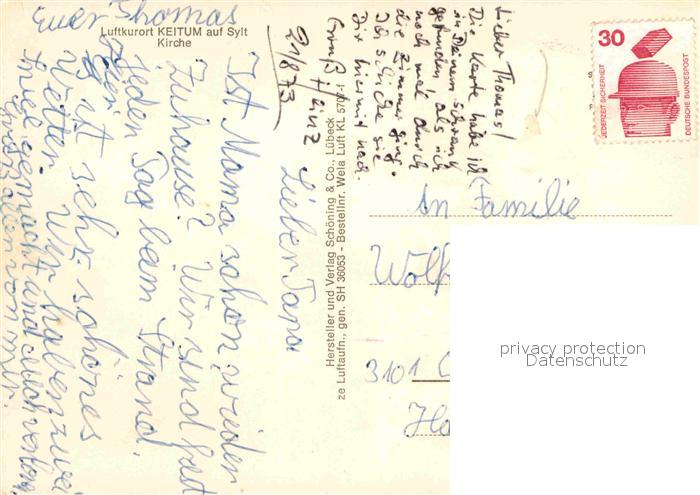 Luftkurort KEITUM auf Sylt
Kirche
Lieber Papa
Ist Mama schon wieder
zuhause? Wir sind fast
jeden Tag beim Strand.
Hier ist sehr schönes
Wetter. Wir haben zwei
gemacht und auch verloren
Grüß alle von mir.
Euer Thomas
21/8 73
Lieber Thomas!
Die Karte habe ich
in Deinem Schrank
gefunden als ich
noch mal durch
die Zimmer ging.
Ich schicke sie
Dir hiermit nach.
Gruß Heinz
Hersteller und Verlag Schöning & Co., Lübeck
ze Luftaufn., gen. SH 36053 - Bestellnr. Wela Luft KL 5700-1
30
JEDERZEIT SICHERHEIT
DEUTSCHE BUNDESPOST
An Familie
Wolf
3101
privacy protection
Datenschutz